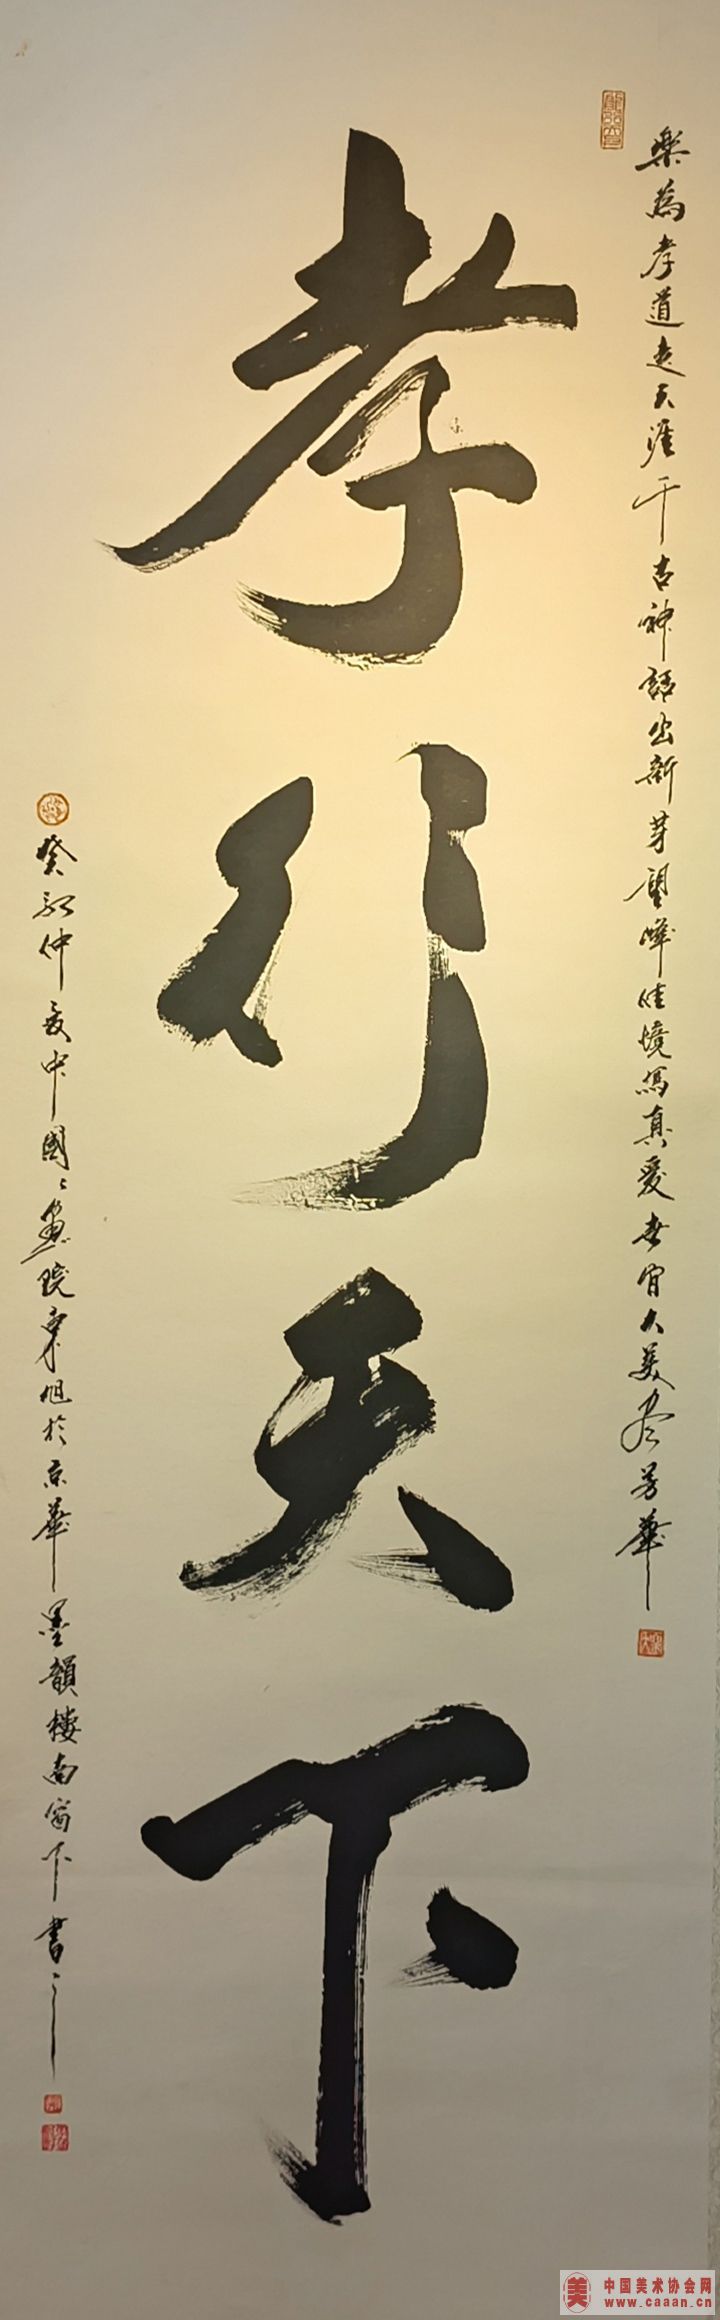 樂為孝道走天涯千古神話出新芽望峰佳境為真愛世宵大美尽芳華
孝行天下
癸卯仲夏中國國畫院東旭於京華墨韻樓南窗下書之
美 中国美术协会网
www.caaan.cn